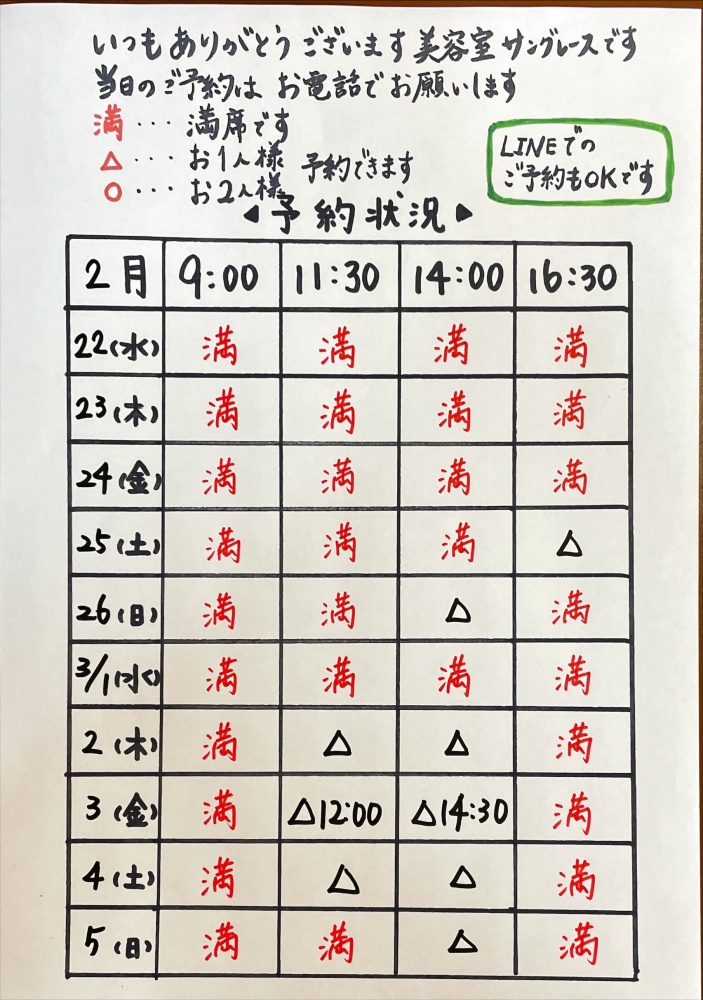 いつもありがとうございます 美容室 サングレースです
当日のご予約は お電話でお願いします
満・・・満席です
△・・・お1人様 予約できます
○・・・お2人様
LINEでの
ご予約もOKです
◀予約状況▶
2月 9:00 11:30 14:00 16:30
22(水) 満 満 満 満
23(木) 満 満 満 満
24(金) 満 満 満 満
25(土) 満 満 満 △
26(日) 満 満 △ 満
3/1(水) 満 満 満 満
2(木) 満 △ △ 満
3(金) 満 △12:00 △14:30 満
4(土) 満 △ △ 満
5(日) 満 満 △ 満